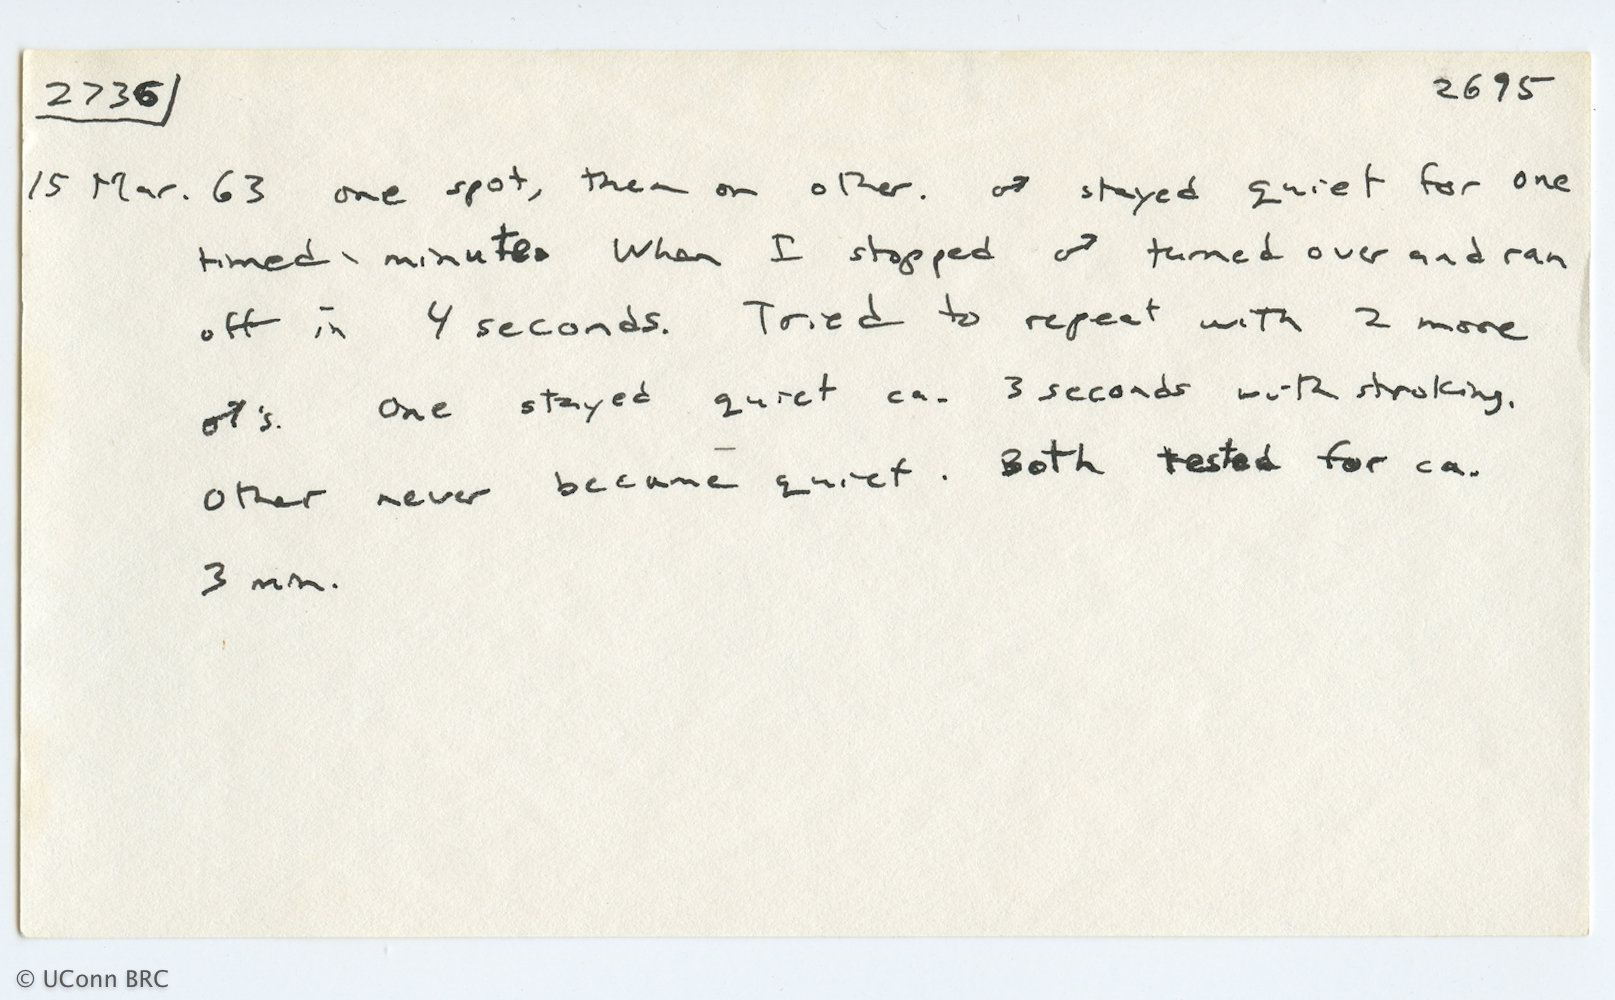 2736 2695
15 Mar. 63 one spot, then on other. ♂ stayed quiet for one
timed minute. When I stopped ♂ turned over and ran
off in 4 seconds. Tried to repeat with 2 more
♂'s. One stayed quiet ca. 3 seconds with stroking.
Other never became quiet. Both tested for ca.
3 min.
© UConn BRC